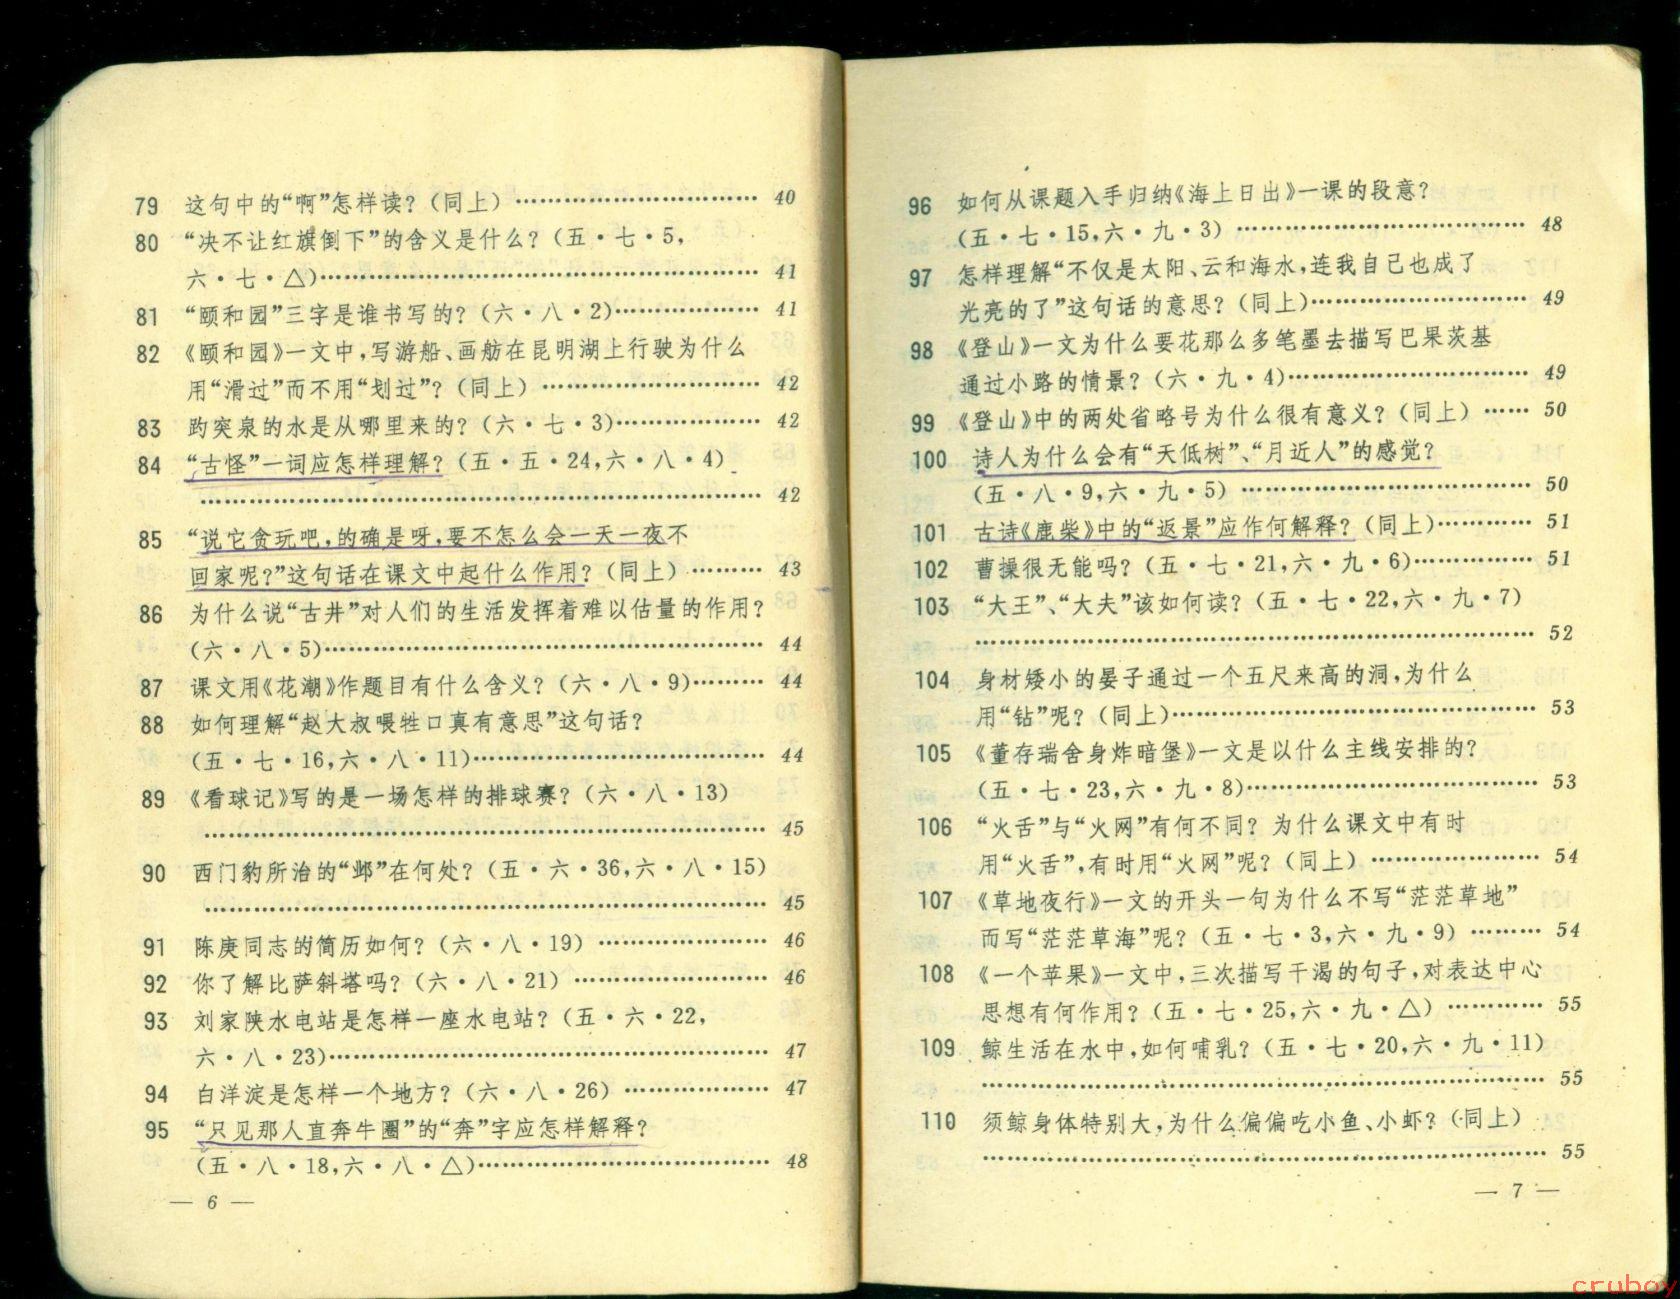 79 这句中的“啊”怎样读?(同上)…………………………40
80 “决不让红旗倒下”的含义是什么?(五·七·5,
六·七·△)………………………………………………41
81 “颐和园”三字是谁书写的?(六·八·2)………………41
82 《颐和园》一文中,写游船、画舫在昆明湖上行驶为什么
用“滑过”而不用“划过”?(同上)………………………42
83 趵突泉的水是从哪里来的?(六·七·3)………………42
84 “古怪”一词应怎样理解?(五·五·24,六·八·4)
……………………………………………………………42
85 “说它贪玩吧,的确是呀,要不怎么会一天一夜不
回家呢?”这句话在课文中起什么作用?(同上)………43
86 为什么说“古井”对人们的生活发挥着难以估量的作用?
(六·八·5)………………………………………………44
87 课文用《花潮》作题目有什么含义?(六·八·9)………44
88 如何理解“赵大叔喂牲口真有意思”这句话?
(五·七·16,六·八·11)………………………………44
89 《看球记》写的是一场怎样的排球赛?(六·八·13)
……………………………………………………………45
90 西门豹所治的“邺”在何处?(五·六·36,六·八·15)
……………………………………………………………45
91 陈赓同志的简历如何?(六·八·19)…………………46
92 你了解比萨斜塔吗?(六·八·21)……………………46
93 刘家陕水电站是怎样一座水电站?(五·六·22,
六·八·23)………………………………………………47
94 白洋淀是怎样一个地方?(六·八·26)………………47
95 “只见那人直奔牛圈”的“奔”字应怎样解释?
(五·八·18,六·八·△)………………………………48
— 6 —
96 如何从课题入手归纳《海上日出》一课的段意?
(五·七·15,六·九·3)………………………………48
97 怎样理解“不仅是太阳、云和海水,连我自己也成了
光亮的了”这句话的意思?(同上)………………………49
98 《登山》一文为什么要花那么多笔墨去描写巴果茨基
通过小路的情景?(六·九·4)…………………………49
99 《登山》中的两处省略号为什么很有意义?(同上)……50
100 诗人为什么会有“天低树”、“月近人”的感觉?
(五·八·9,六·九·5)…………………………………50
101 古诗《鹿柴》中的“返景”应作何解释?(同上)…………51
102 曹操很无能吗?(五·七·21,六·九·6)………………51
103 “大王”、“大夫”该如何读?(五·七·22,六·九·7)
……………………………………………………………52
104 身材矮小的晏子通过一个五尺来高的洞,为什么
用“钻”呢?(同上)………………………………………53
105 《董存瑞舍身炸暗堡》一文是以什么主线安排的?
(五·七·23,六·九·8)…………………………………53
106 “火舌”与“火网”有何不同?为什么课文中有时
用“火舌”,有时用“火网”呢?(同上)…………………54
107 《草地夜行》一文的开头一句为什么不写“茫茫草地”
而写“茫茫草海”呢?(五·七·3,六·九·9)………54
108 《一个苹果》一文中,三次描写干渴的句子,对表达中心
思想有何作用?(五·七·25,六·九·△)…………55
109 鲸生活在水中,如何哺乳?(五·七·20,六·九·11)
……………………………………………………………55
110 须鲸身体特别大,为什么偏偏吃小鱼、小虾?(同上)
……………………………………………………………55
— 7 —
cruboy